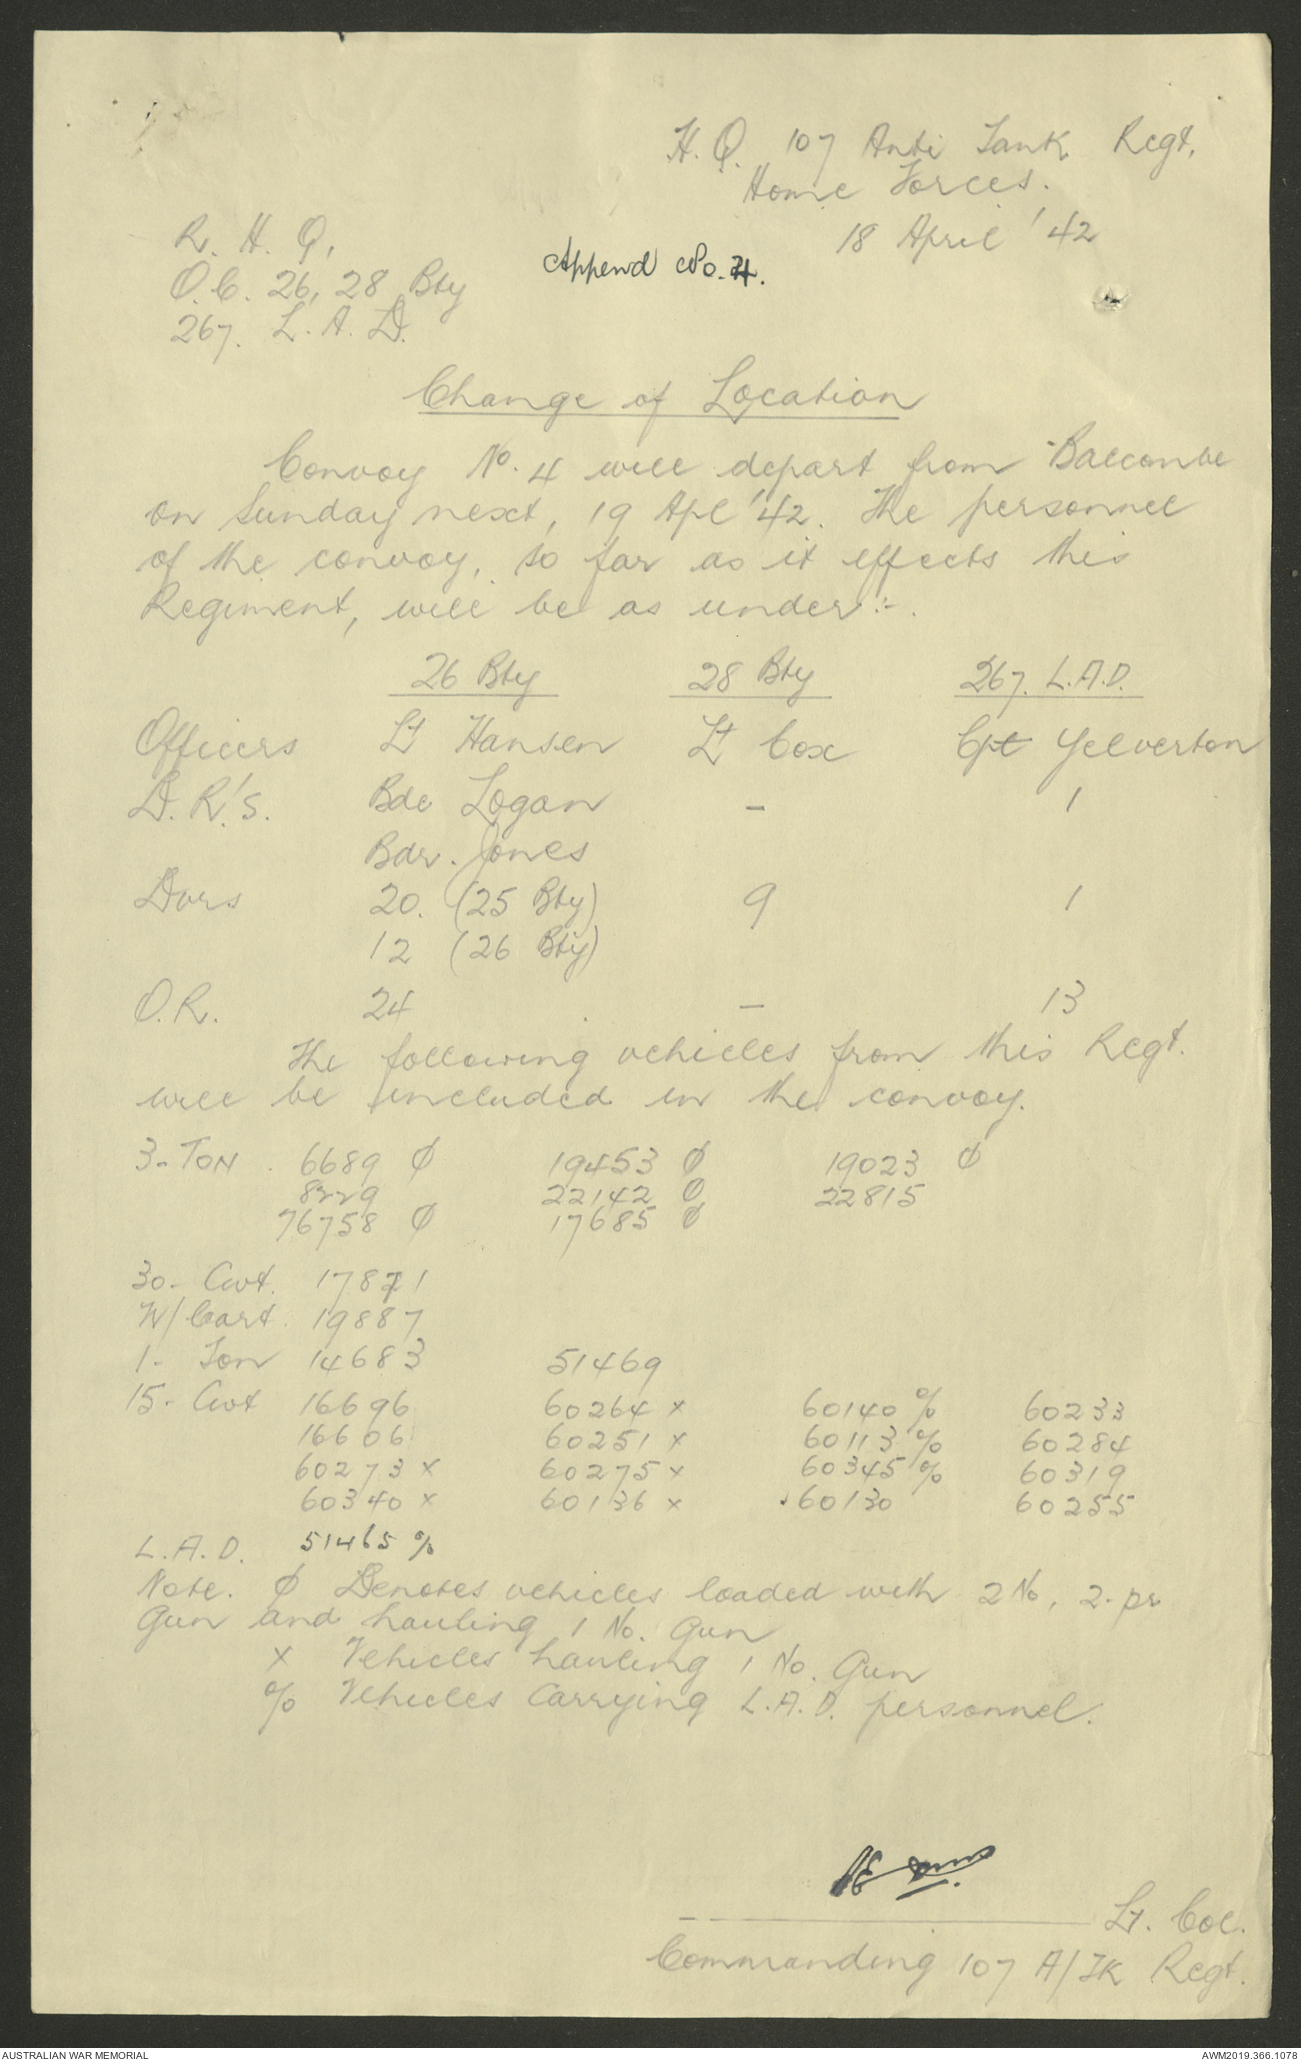 H.Q. 107 Anti Tank Regt.
Home Forces.
18 April '42
R. H. Q.
O.C. 26, 28 Bty
267. L.A.D.
Append No. 4.
Change of Location
Convoy No. 4 will depart from Balcombe
on Sunday next, 19 Apl '42. The personnel
of the convoy, so far as it effects this
Regiment, will be as under:-
26 Bty 28 Bty 267. L.A.D.
Officers Lt Hansen Lt Cox Cpt Yelverton
D.R.'s. Bde Logan - 1
Bdr. Jones
Dvrs 20. (25 Bty) 9 1
12 (26 Bty)
O.R. 24 - 13
The following vehicles from this Regt.
will be included in the convoy.
3-TON 6689 Ø 19453 Ø 19023 Ø
8229 22142 Ø 22815
76758 Ø 17685 Ø
30-Cwt. 17871
W/Cart. 19887
1-Ton 14683 51469
15-Cwt 16696 60264 x 60140 % 60233
16606 60251 x 60113 % 60284
60273 x 60275 x 60345 % 60319
60340 x 60136 x 60130 60255
L.A.D. 51465 %
Note. Ø Denotes vehicles loaded with 2 No. 2-pr
Gun and hauling 1 No. Gun
x Vehicles hauling 1 No. Gun
% Vehicles Carrying L.A.D. personnel.
Lt. Col.
Commanding 107 A/TK Regt.
AUSTRALIAN WAR MEMORIAL AWM2019.366.1078